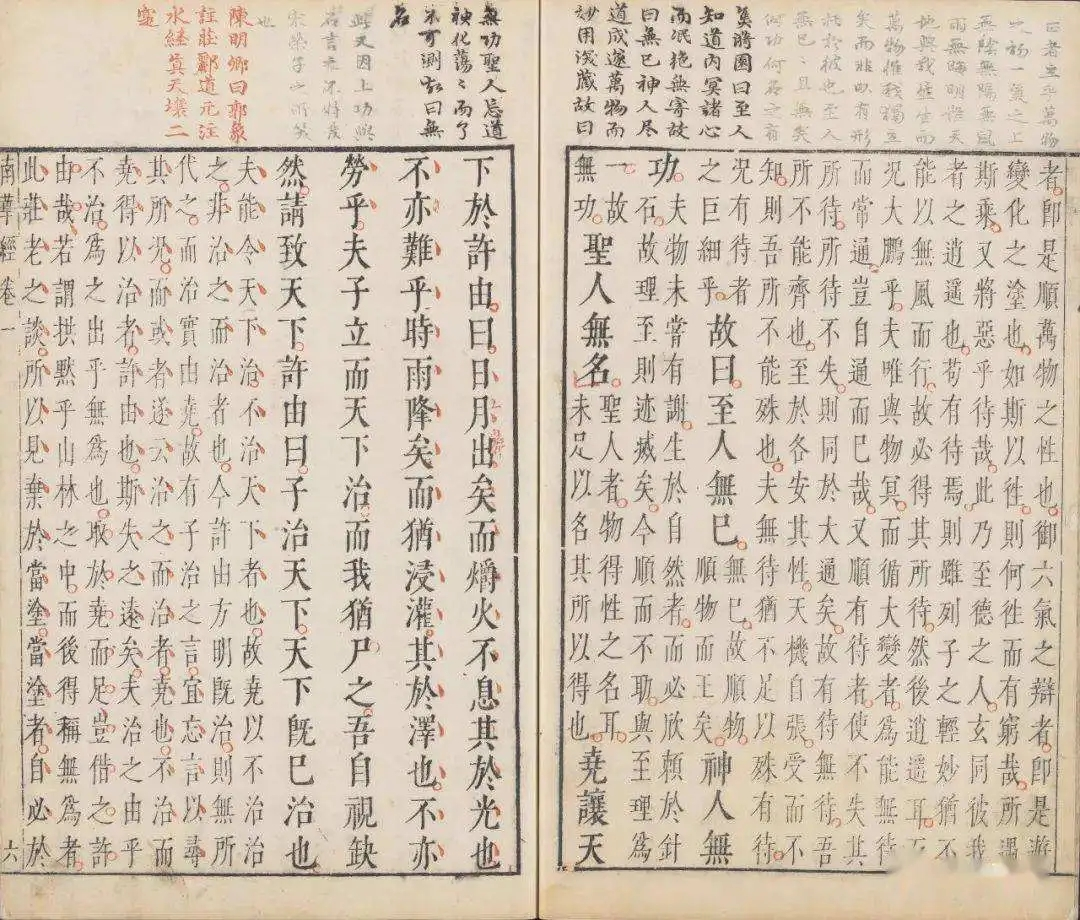 曰者主乎萬物
之初一氣之上
無陰無陽無風
雨無晦明惟天
地與我恒生而
萬物惟我獨立
矣而非以有形
托於彼也至人
無已〻且無矣
何功何名之有
將圜曰至人
知道内冥諸心
而泯絶無寄故
曰無已神人尽
道成遂萬物而
妙用深藏故曰
者卽是順萬物之性也御六氣之辯者卽是遊
變化之塗也如斯以徃則何徃而有窮哉所遇
斯乘又將惡乎待哉此乃至德之人玄同彼我
者之逍遥也苟有待焉則雖列子之輕妙猶不
能以無風而行故必得其所待然後逍遥耳而
况大鵬乎夫唯與物冥而循大變者爲能無待
而常通豈自通而已哉又順有待者使不失其
所待所待不失則同於大通矣故有待無待吾
所不能齊也至於各安其性天機自張受而不
知則吾所不能殊也夫無待猶不足以殊有待
况有待者
之巨細乎
故曰至人無已
無已故順物
順物而王矣
神人無
功
夫物未嘗有謝生於自然者而必欣賴於針
石故理至則迹滅矣今順而不助與至理爲
一故
無功
聖人無名
聖人者物得性之名耳
未足以名其所以得也
堯讓天
無功聖人忘道
神化蕩〻而了
不可測故曰無
名
此又因上功與
名言之不特
宋榮子之所笑
也
陳明卿曰郭象
註莊酈道元注
水經真天壤二
靈
下於許由曰日月出矣而爝火不息其於光也
不亦難乎時雨降矣而猶浸灌其於澤也不亦
勞乎夫子立而天下治而我猶尸之吾自視缺
然請致天下許由曰子治天下天下旣已治也
夫能令天下治不治天下者也故堯以不治治
之非治之而治者也今許由方明旣治則無所
代之而治實由堯故有子治之言宜忘言以尋
其所况而或者遂云治之而治者堯也不治而
堯得以治者許由也斯失之遠矣夫治之由乎
不治爲之出乎無爲也取於堯而足豈借之許
由哉若謂拱黙乎山林之中而後得稱無爲者
此莊老之談所以見棄於當塗當塗者自必於
南華經卷一 六